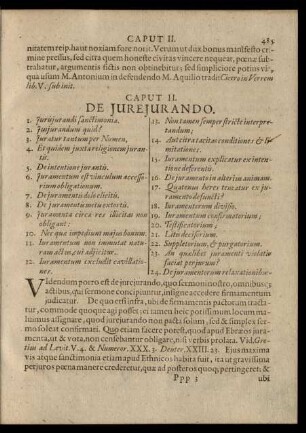 CAPUT II. 485
nitatem reip. haut noxiam fore norit. Verum ut dux bonus manifesto crimine pressus, sed citra quem honeste civitas vincere nequeat, pœnæ subtrahatur, argumentis fictis non obtinebitur, sed simpliciore potius via,
qua usum M. Antonium in defendendo M. Aquilio tradit Cicero in Verrem
lib. V. sub init.
CAPUT II.
DE JUREJURANDO.
1. Jurisjurandi sanctimonia.
2. Jusjurandum quid?
3. Juratur tantum per Numen.
4. Et quidem juxta religionem jurantis.
5. De intentione jurantis.
6. Juramentum est vinculum accessorium obligationum.
7. De juramento dolo elicito.
8. De juramento metu extorto.
9. Juramenta circa res illicitas non obligant:
10. Nec quæ impediunt majus bonum.
11. Juramentum non immutat naturam actus, cui adjicitur.
12. Juramentum excludit cavillationes.
13. Non tamen semper stricte interpretandum;
14. Aut citra tacitas conditiones & limitationes.
15. Juramentum explicatur ex intentione deferentis.
16. De juramento in alterius animam.
17. Quatenus heres teneatur ex juramento defuncti?
18. Juramentorum divisio.
19. Juramentum confirmatorium;
20. Testificatorium;
21. Litis decisorium.
22. Suppletorium, & purgatorium.
23. An quælibet juramenti violatio faciat perjurum?
24. De juramentorum relaxationibus.
Videndum porro est de jurejurando, quo sermoni nostro, omnibusque
actibus, qui sermone concipiuntur, insigne accedere firmamentum
judicatur. De quo etsi infra, ubi de firmamentis pactorum tractatur, commode quoque agi potuisset; cam en heic potissimum locum malumus assignare, quod jurejurando non pacta solum, sed & simplex sermo soleat confirmari. Quo etiam facere potest, quod apud Ebræos juramenta, ut & vota, non censebantur obligare, nisi verbis prolata. Vid. Grotius ad Levit. V. 4. & Numeror. XXX. 3. Deuter. XXIII. 23. Ejus maxima
vis atque sanctimonia etiam apud Ethnicos habita fuit, ita ut gravissima
perjuros pœna manere crederetur, quæ ad posteros quoque pertingeret; &
Ppp 3 ubi